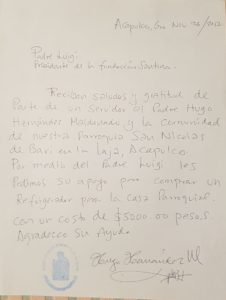 Acapulco, Gro Nov 26/2022
Padre Luigi
Presidente de la fundación Santina.
Reciban saludos y gratitud de
Parte de un servidor el Padre Hugo
Hernández Maldonado y la comunidad
de nuestra Parroquia San Nicolas
de Bari en la Laja, Acapulco.
Por medio del Padre Luigi les
Pedimos su apoyo para comprar un
Refrigerador para la casa Parroquial.
con un costo de $5000.00 pesos.
Agradezco su Ayuda.
Hugo Hernández M